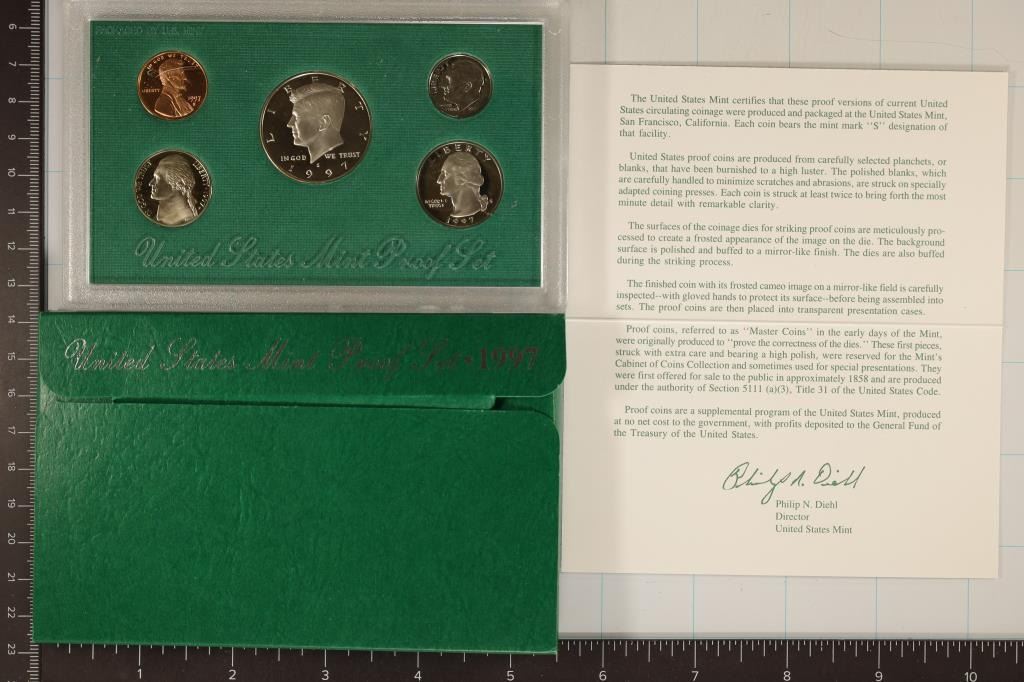 PACKAGED BY U.S. MINT
IN GOD WE TRUST
LIBERTY
1997
S
LIBERTY
IN GOD WE TRUST
1997
LIBERTY
LIBERTY
IN GOD WE
TRUST
1997
United States Mint Proof Set
United States Mint Proof Set • 1997
The United States Mint certifies that these proof versions of current United
States circulating coinage were produced and packaged at the United States Mint,
San Francisco, California. Each coin bears the mint mark "S" designation of
that facility.
United States proof coins are produced from carefully selected planchets, or
blanks, that have been burnished to a high luster. The polished blanks, which
are carefully handled to minimize scratches and abrasions, are struck on specially
adapted coining presses. Each coin is struck at least twice to bring forth the most
minute detail with remarkable clarity.
The surfaces of the coinage dies for striking proof coins are meticulously pro-
cessed to create a frosted appearance of the image on the die. The background
surface is polished and buffed to a mirror-like finish. The dies are also buffed
during the striking process.
The finished coin with its frosted cameo image on a mirror-like field is carefully
inspected--with gloved hands to protect its surface--before being assembled into
sets. The proof coins are then placed into transparent presentation cases.
Proof coins, referred to as "Master Coins" in the early days of the Mint,
were originally produced to "prove the correctness of the dies." These first pieces,
struck with extra care and bearing a high polish, were reserved for the Mint's
Cabinet of Coins Collection and sometimes used for special presentations. They
were first offered for sale to the public in approximately 1858 and are produced
under the authority of Section 5111 (a)(3), Title 31 of the United States Code.
Proof coins are a supplemental program of the United States Mint, produced
at no net cost to the government, with profits deposited to the General Fund of
the Treasury of the United States.
Philip N. Diehl
Philip N. Diehl
Director
United States Mint
6
7
8
9
10
11
12
13
14
15
16
17
18
19
20
21
22
23
1 2 3 4 5 6 7 8 9 10